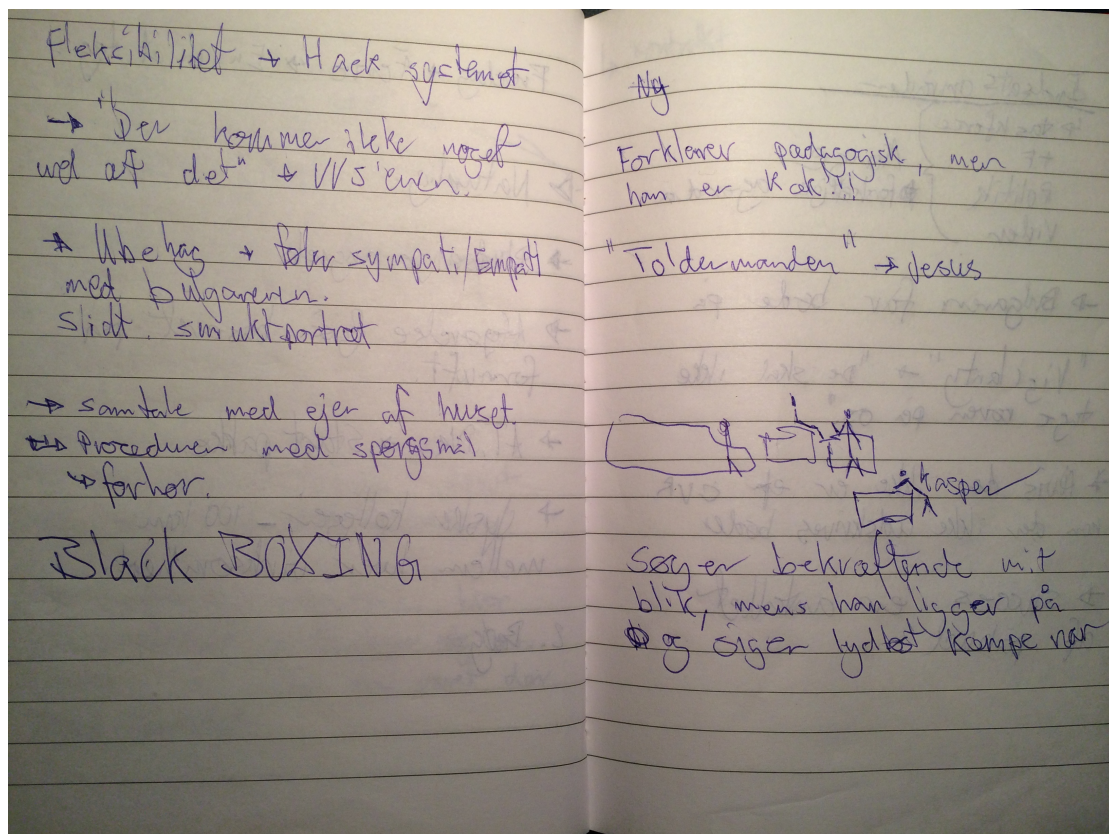 Fleksibilitet → Hack systemet
→ "Der kommer ikke noget
ud af det" → VVS'eren.
→ Ubehag → føler sympati/Empati
med bulgareren.
slidt. smuktportræt
→ samtale med ejer af huset.
→ Proceduren med spørgsmål
↳ forhør.
Black BOXING
Ny
Forklarer pædagogisk, men
han er kæk!!
"Toldermanden" → Jesus
Kasper
Søger bekræftende mit
blik, mens han ligger på
og siger lydløst kæmpe nar